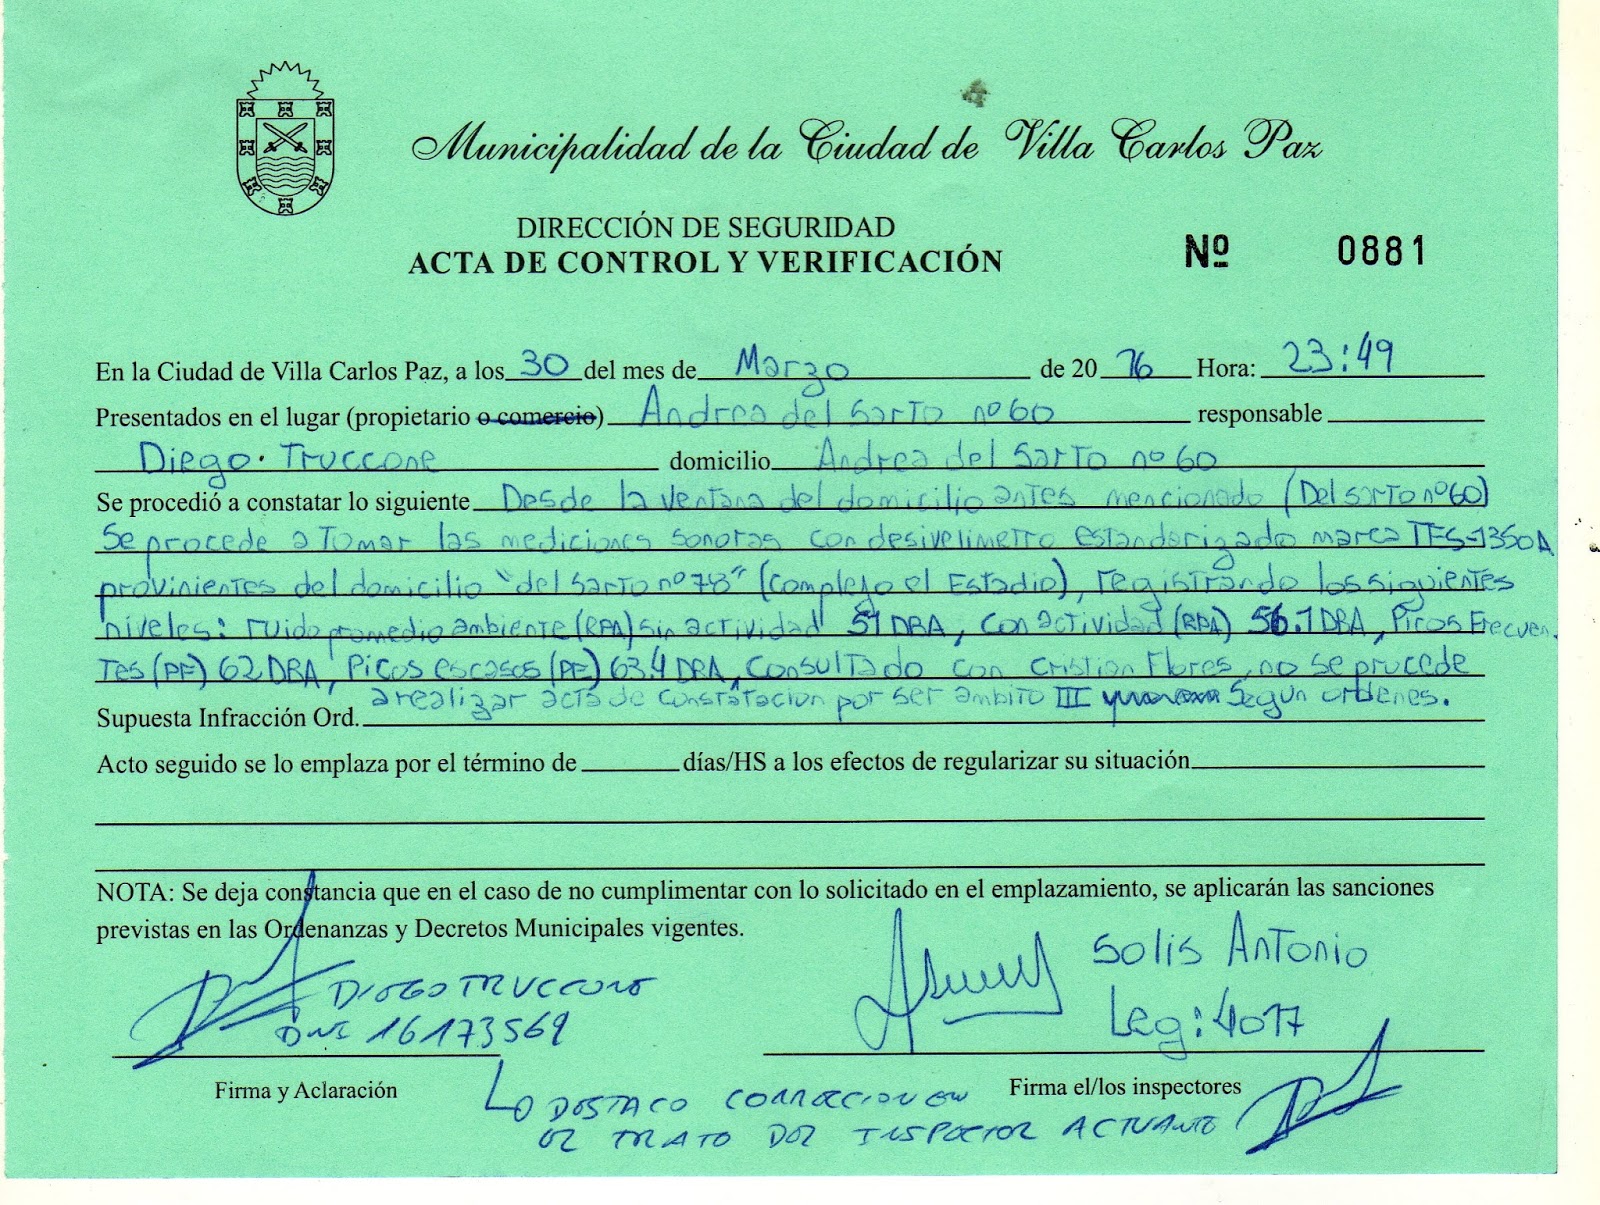 Municipalidad de la Ciudad de Villa Carlos Paz
DIRECCIÓN DE SEGURIDAD
ACTA DE CONTROL Y VERIFICACIÓN
Nº 0881
En la Ciudad de Villa Carlos Paz, a los 30 del mes de Marzo de 20 16 Hora: 23:49
Presentados en el lugar (propietario o comercio) Andrea del Sarto nº 60 responsable
Diego Truccone domicilio Andrea del Sarto nº 60
Se procedió a constatar lo siguiente Desde la ventana del domicilio antes mencionado (Del sarto nº 60)
Se procede a Tomar las mediciones sonoras con desivelimetro estandarizado marca TES-1350A
provinientes del domicilio "del Sarto nº 78" (Complejo el Estadio), registrando los siguientes
niveles: ruido promedio ambiente (RPA) sin actividad 51 DBA, con actividad (RPA) 56.1 DBA, Picos Frecuen-
Tes (PF) 62 DBA, Picos escasos (PE) 63.4 DBA, Consultado con Cristian Flores, no se procede
a realizar acta de constatacion por ser ambito III Segun ordenes.
Supuesta Infracción Ord.
Acto seguido se lo emplaza por el término de días/HS a los efectos de regularizar su situación
NOTA: Se deja constancia que en el caso de no cumplimentar con lo solicitado en el emplazamiento, se aplicarán las sanciones
previstas en las Ordenanzas y Decretos Municipales vigentes.
DIEGO TRUCCONE
DNI 16173569
Solis Antonio
Leg: 4017
Firma y Aclaración
Firma el/los inspectores
LO DESTACO CORRECCION EN
EL TRATO DEL INSPECTOR ACTUANTE